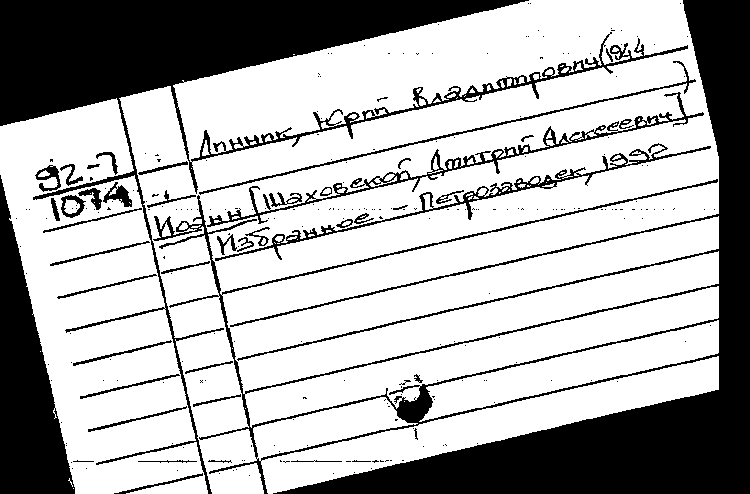 Линник, Юрий Владимирович (1944
)
92-7
1074
Иоанн [Шаховской, Дмитрий Алексеевич]
Избранное. - Петрозаводск, 1992